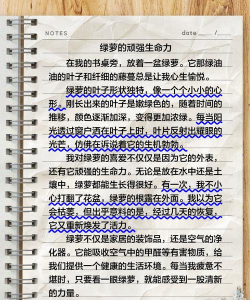 NOTES
date    /
绿萝的顽强生命力
在我的书桌旁，放着一盆绿萝。它那绿油
油的叶子和纤细的藤蔓总是让我心生愉悦。
绿萝的叶子形状独特，像一个个小小的心
形。刚长出来的叶子是嫩绿色的，随着时间的
推移，颜色逐渐加深，变得更加浓绿。每当阳
光透过窗户洒在叶子上时，叶片反射出耀眼的
光芒，仿佛在诉说着它的生机勃勃。
我对绿萝的喜爱不仅仅是因为它的外表，
还有它顽强的生命力。无论是放在水中还是土
壤中，绿萝都能生长得很好。有一次，我不小
心打翻了花盆，绿萝的根露在外面。我以为它
会枯萎，但出乎意料的是，经过几天的恢复，
它又重新焕发了活力。
绿萝不仅是家居的装饰品，还是空气的净
化器。它能吸收空气中的甲醛等有害物质，给
我们提供一个健康的生活环境。每当我疲惫不
堪时，只要看一眼绿萝，就能感受到一股清新
的力量。